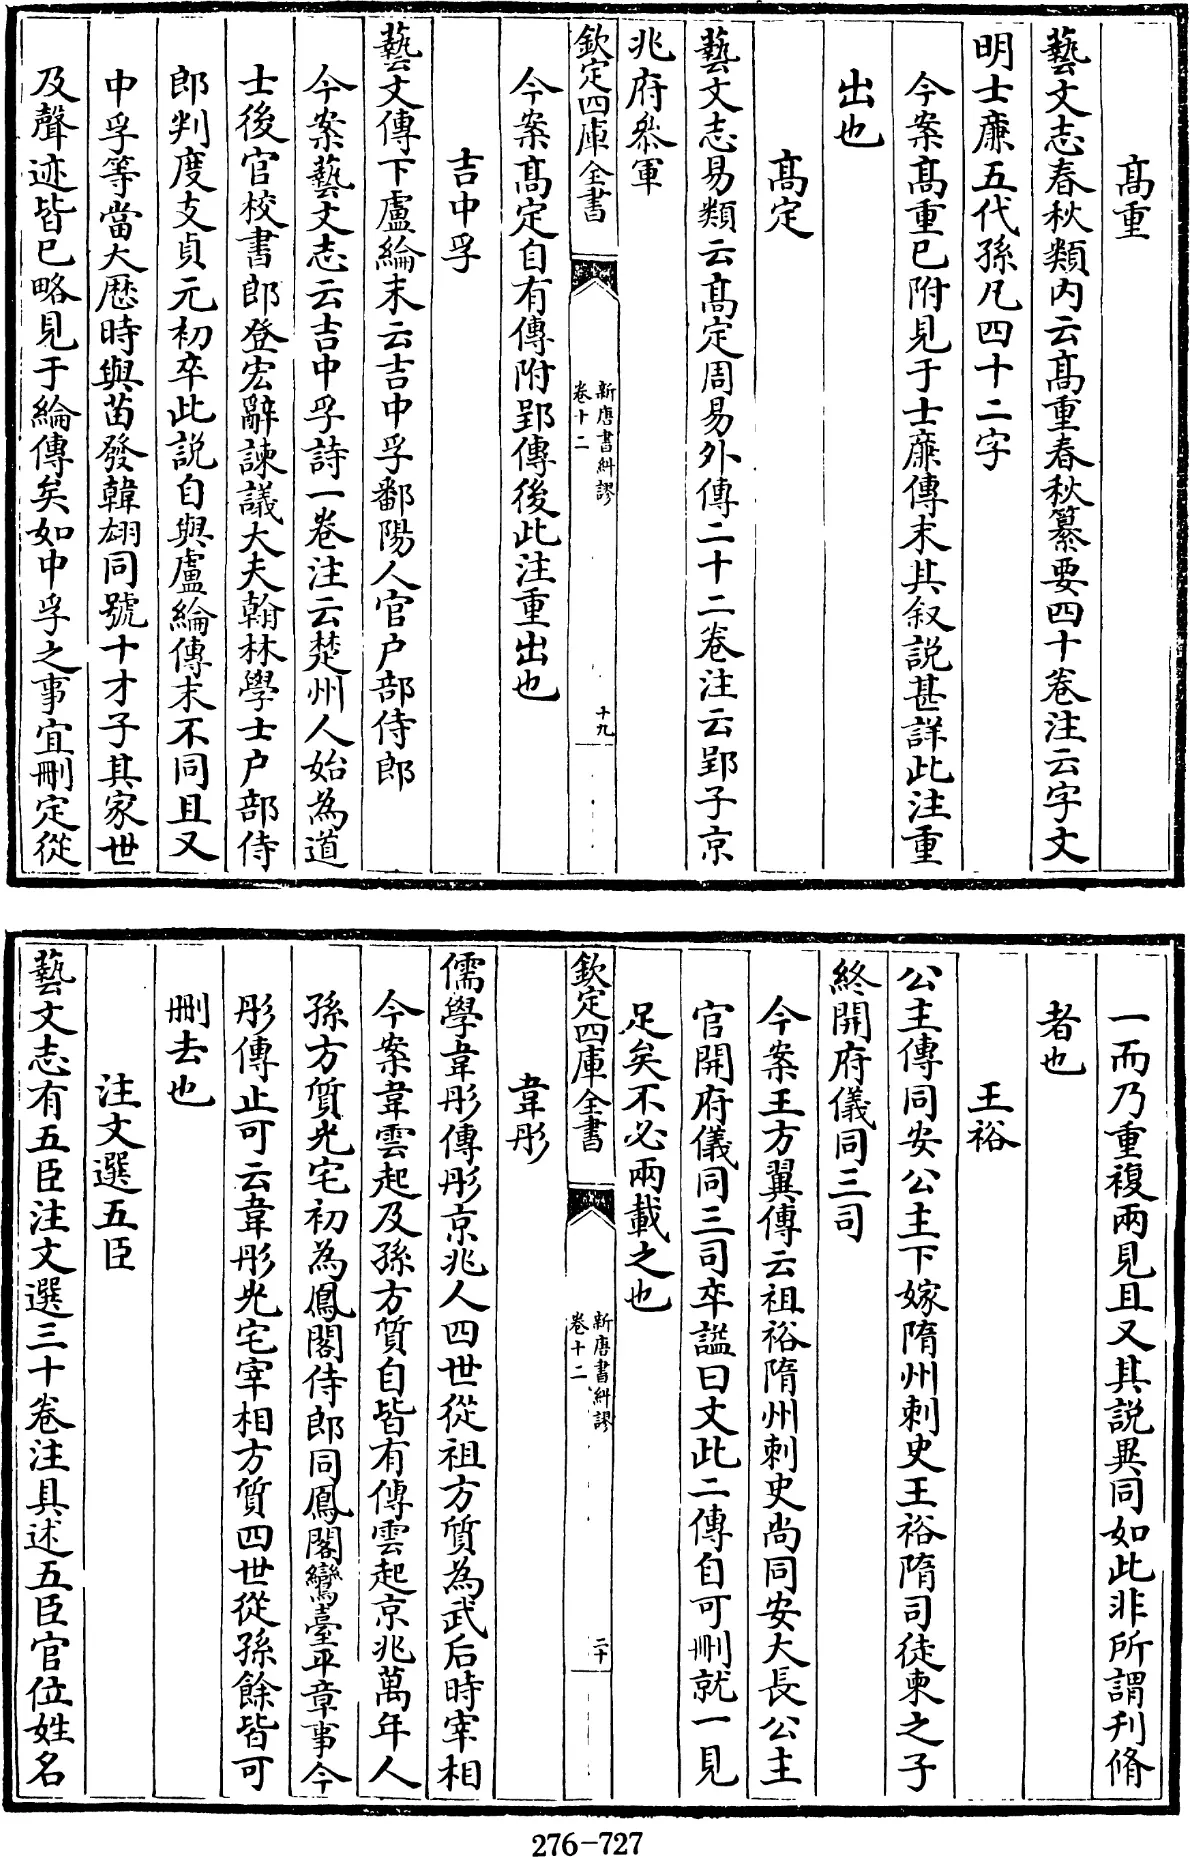 髙重
藝文志春秋類内云髙重春秋纂要四十卷注云字文
明士㢘五代孫凡四十二字
今案髙重已附見于士㢘傳末其叙説甚詳此注重
出也
髙定
藝文志易類云髙定周易外傳二十二卷注云郢子京
兆府叅軍
欽定四庫全書
新唐書糾謬
卷十二
十九
今案髙定自有傳附郢傳後此注重出也
吉中孚
藝文傳下盧綸末云吉中孚鄱陽人官户部侍郎
今案藝文志云吉中孚詩一卷注云楚州人始為道
士後官校書郎登宏辭諫議大夫翰林學士户部侍
郎判度支貞元初卒此説自與盧綸傳末不同且又
中孚等當大厯時與苗發韓翃同號十才子其家世
及聲迹皆已略見于綸傳矣如中孚之事宜刪定從
一而乃重複兩見且又其説異同如此非所謂刋脩
者也
王裕
公主傳同安公主下嫁隋州刺史王裕隋司徒柬之子
終開府儀同三司
今案王方翼傳云祖裕隋州刺史尚同安大長公主
官開府儀同三司卒謚曰文此二傳自可刪就一見
足矣不必兩載之也
欽定四庫全書
新唐書糾謬
卷十二
二十
韋彤
儒學韋彤傳彤京兆人四世從祖方質為武后時宰相
今案韋雲起及孫方質自皆有傳雲起京兆萬年人
孫方質光宅初為鳳閣侍郎同鳳閣鸞臺平章事今
彤傳止可云韋彤光宅宰相方質四世從孫餘皆可
刪去也
注文選五臣
藝文志有五臣注文選三十卷注具述五臣官位姓名
276-727